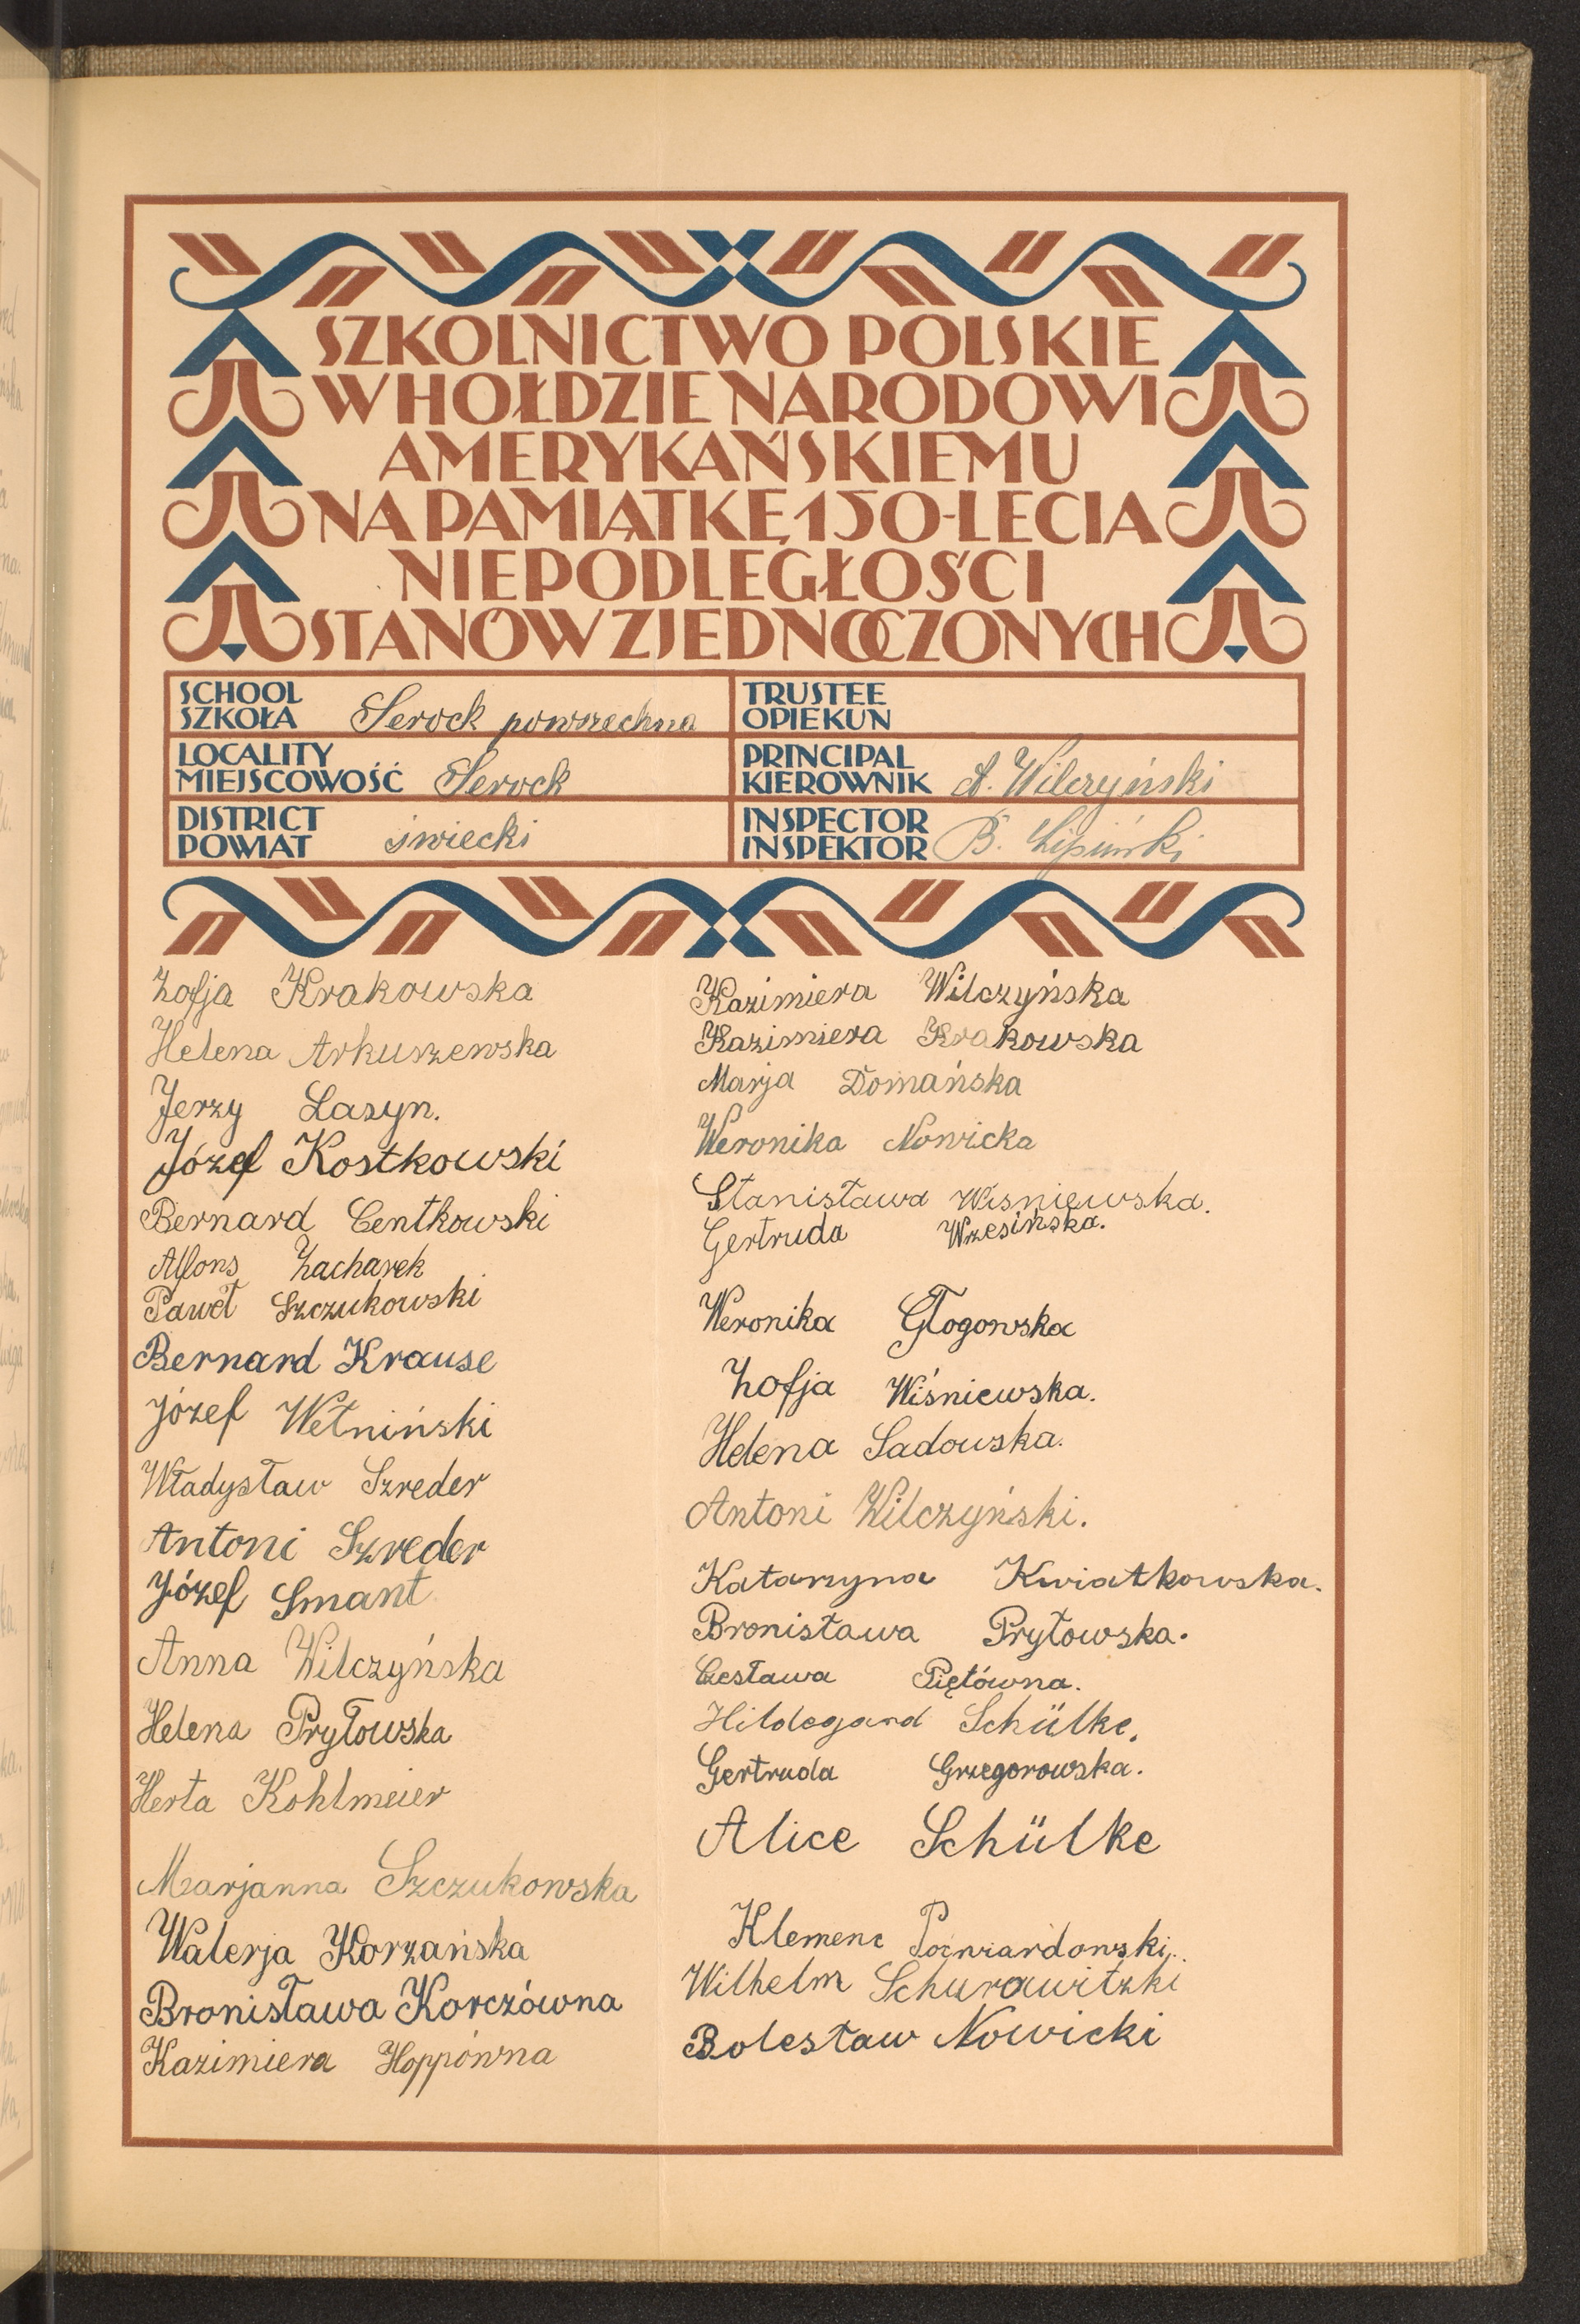 SZKOLNICTWO POLSKIE
W HOŁDZIE NARODOWI
AMERYKAŃSKIEMU
NA PAMIĄTKĘ 150-LECIA
NIEPODLEGŁOŚCI
STANÓW ZJEDNOCZONYCH
SCHOOL
SZKOŁA Serock powszechna
TRUSTEE
OPIEKUN
LOCALITY
MIEJSCOWOŚĆ Serock
PRINCIPAL
KIEROWNIK A. Wilczyński
DISTRICT
POWIAT świecki
INSPECTOR
INSPEKTOR B. Lipiński
Zofja Krakowska
Helena Arkuszewska
Jerzy Lasyn.
Józef Kostkowski
Bernard Centkowski
Alfons Zacharek
Paweł Szczukowski
Bernard Krause
Józef Wełniński
Władysław Szreder
Antoni Szreder
Józef Smant
Anna Wilczyńska
Helena Pryłowska
Herta Kohlmeier
Marjanna Szczukowska
Walerja Korzańska
Bronisława Korczówna
Kazimiera Hoppówna
Kazimiera Wilczyńska
Kazimiera Krakowska
Marja Domańska
Weronika Nowicka
Stanisława Wiśniewska.
Gertruda Wrzesińska.
Weronika Głogowska
Zofja Wiśniewska.
Helena Sadowska.
Antoni Wilczyński.
Katarzyna Kwiatkowska.
Bronisława Pryłowska.
Czesława Piętówna.
Hildegard Schülke.
Gertruda Grzegorowska.
Alice Schülke
Klemens
Wilhelm Schurawitzki
Bolesław Nowicki